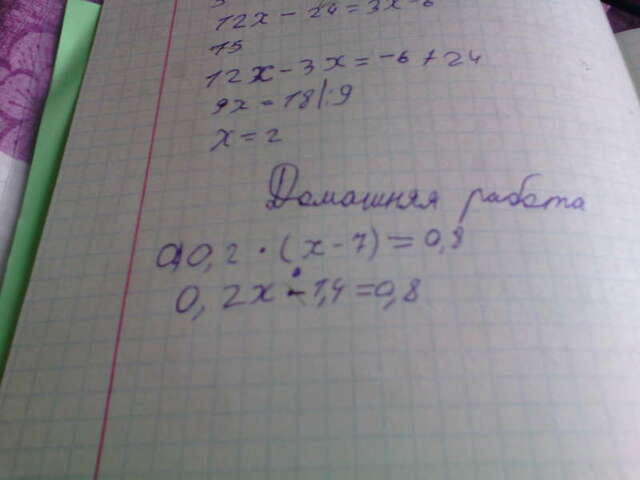 12x - 24 = 3x - 6
15
12x - 3x = -6 + 24
9x = 18 |:9
x = 2
Домашняя работа
0,2 · (x - 7) = 0,9
0,2x - 1,4 = 0,8